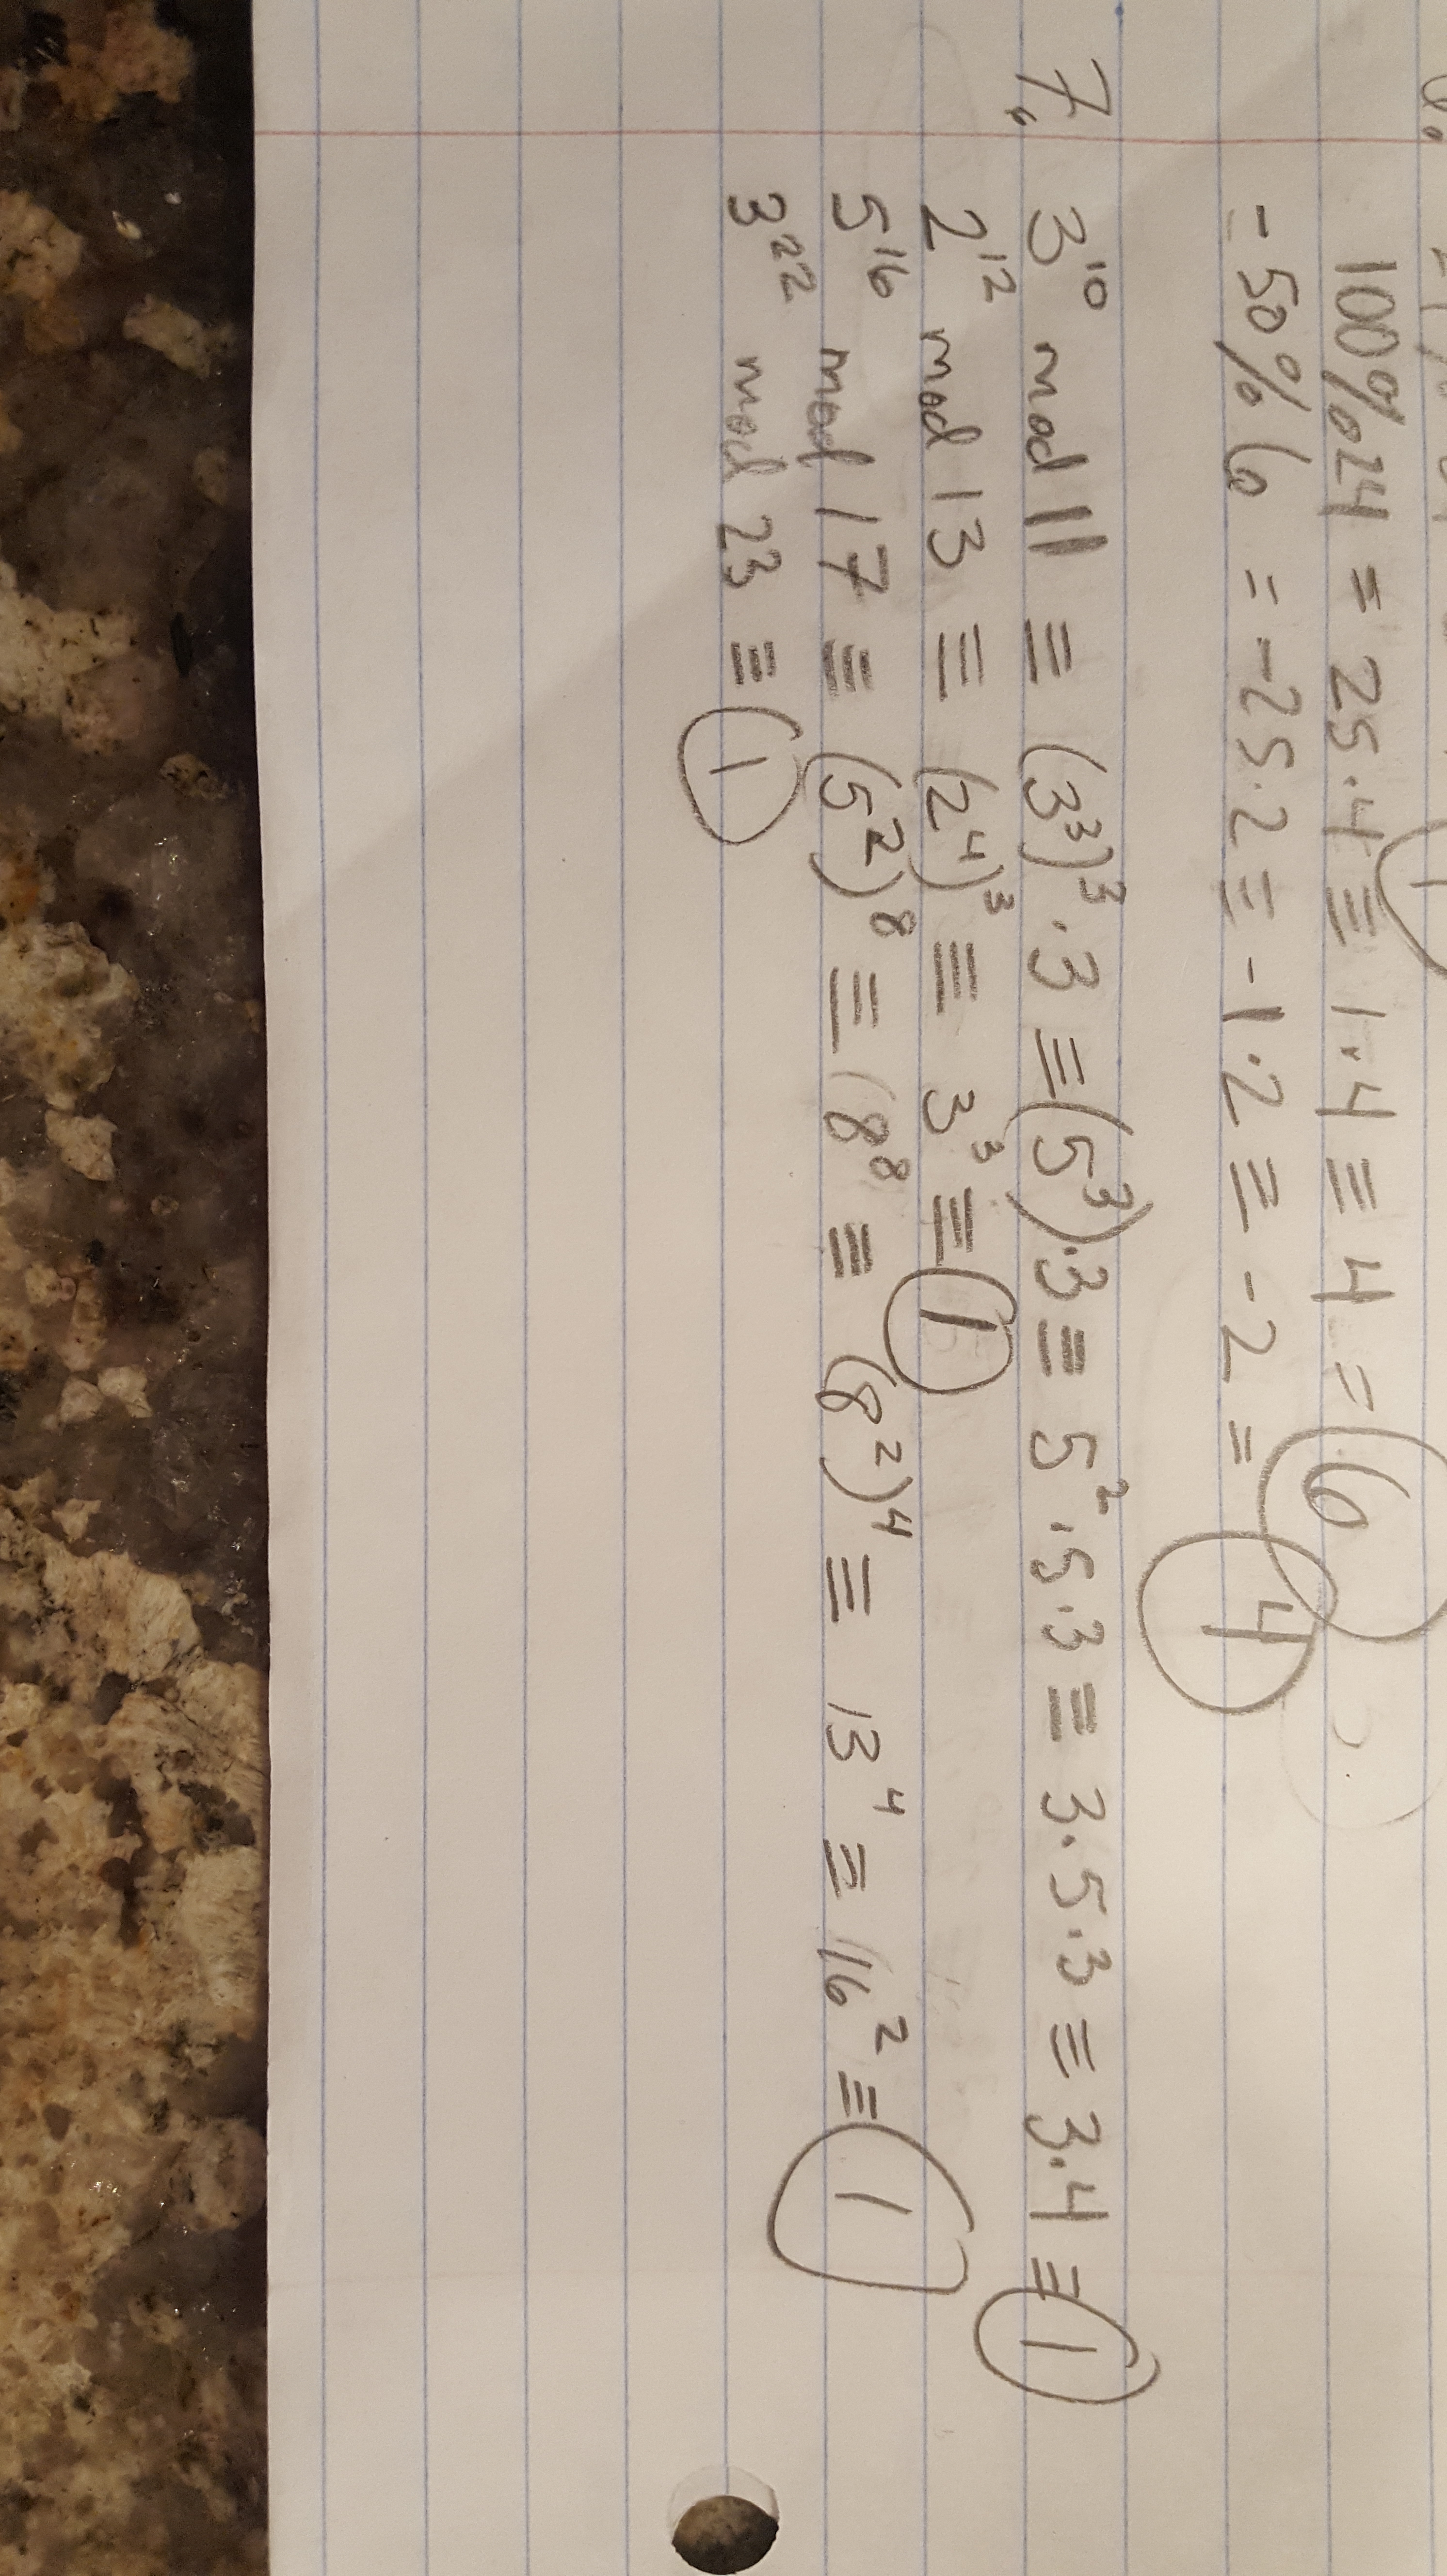 6.
100%24 = 25·4 ≡ 1·4 ≡ 4 = 6
-50%6 = -25·2 ≡ -1·2 ≡ -2 = 4
7. 3¹⁰ mod 11 ≡ (3³)³·3 ≡ (5³)·3 ≡ 5²·5·3 ≡ 3·5·3 ≡ 3·4 ≡ 1
2¹² mod 13 ≡ (2⁴)³ ≡ 3³ ≡ 1
5¹⁶ mod 17 ≡ (5²)⁸ ≡ (8⁸ ≡ (8²)⁴ ≡ 13⁴ ≡ 16² ≡ 1
3²² mod 23 ≡ 1